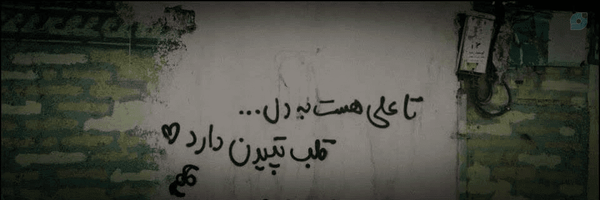 تا علی هست به دل...
قلب تپیدن دارد ♡